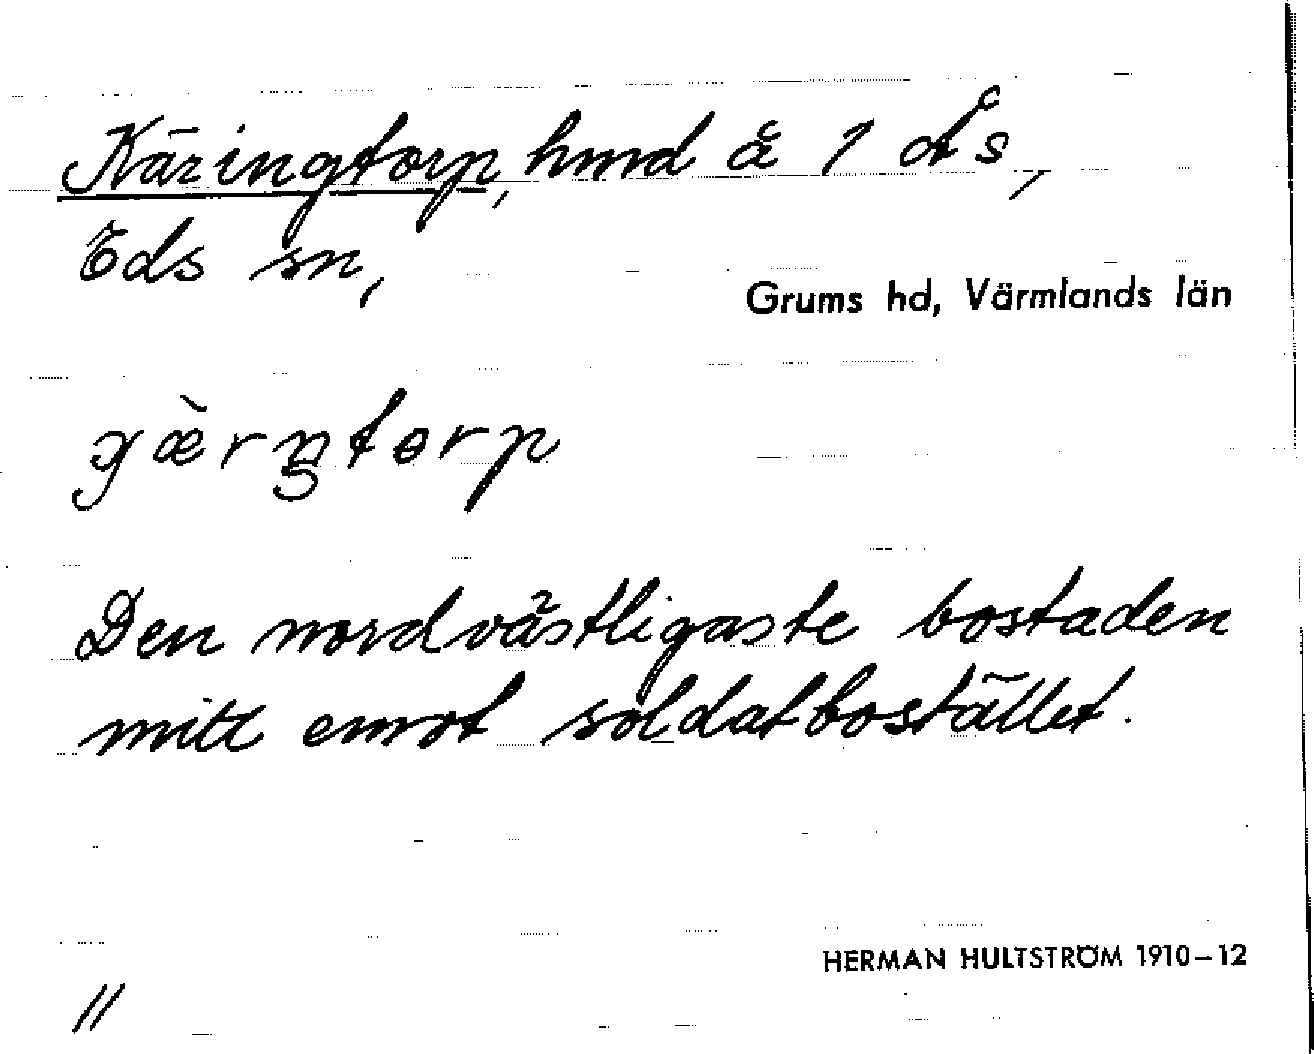 Käringtorp, hmd å 1 Ås,
Eds sn,
Grums hd, Värmlands län
Den nordvästligaste bostaden
mitt emot soldatbostället.
HERMAN HULTSTRÖM 1910–12
11